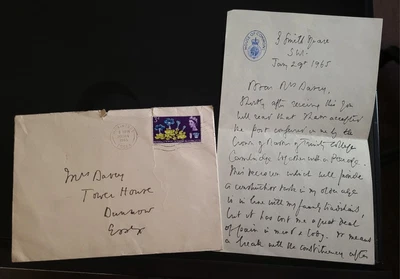 Mrs Davey
Tower House
Dunmow
Essex
HOUSE OF COMMONS
8 Smith Square
S.W.1
Jan 29th 1965
Dear Mrs Davey,
Shortly after receiving this you
will read that I have accepted
the post conferred on me by the
Crown of Master of Trinity College
Cambridge together with a Peerage.
This decision which will provide
a constructive task in my old age
is in line with my family traditions,
but it has cost me a great deal
of pain in mind & body. It means
a break with the constituency after